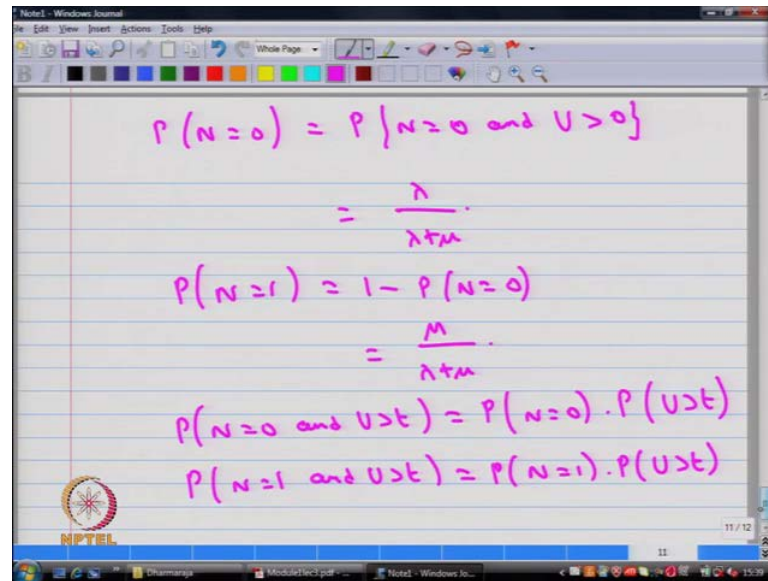 Note1 - Windows Journal
File Edit View Insert Actions Tools Help
Whole Page
B I
P(N=0) = P{N=0 and U>0}
= λ/(λ+μ).
P(N=1) = 1 - P(N=0)
= μ/(λ+μ).
P(N=0 and U>t) = P(N=0).P(U>t)
P(N=1 and U>t) = P(N=1).P(U>t)
NPTEL
11 / 12
11
Dharmaraja
Module1lec3.pdf - ...
Note1 - Windows Jo...
15:39